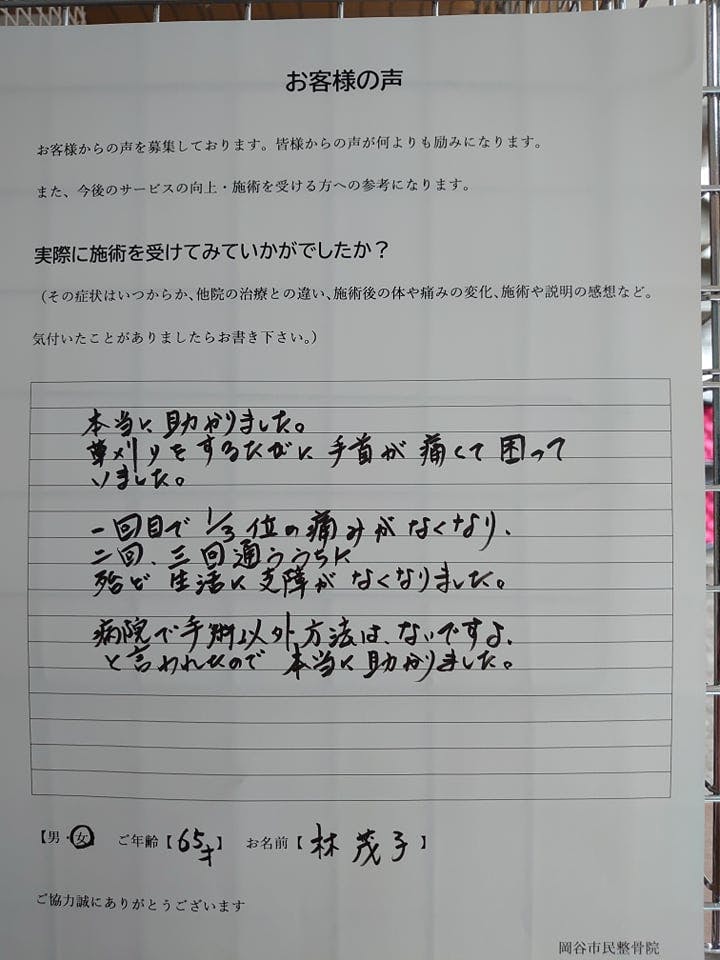 お客様の声
お客様からの声を募集しております。皆様からの声が何よりも励みになります。
また、今後のサービスの向上・施術を受ける方への参考になります。
実際に施術を受けてみていかがでしたか？
（その症状はいつからか、他院の治療との違い、施術後の体や痛みの変化、施術や説明の感想など。
気付いたことがありましたらお書き下さい。）
本当に助かりました。
草刈りをするたびに手首が痛くて困って
いました。
一回目で1/3位の痛みがなくなり、
二回、三回通ううちに
殆ど生活に支障がなくなりました。
病院で手術以外方法は、ないですよ、
と言われたので本当に助かりました。
【男・女】 ご年齢【65才】 お名前【林 茂子】
ご協力誠にありがとうございます
岡谷市民整骨院